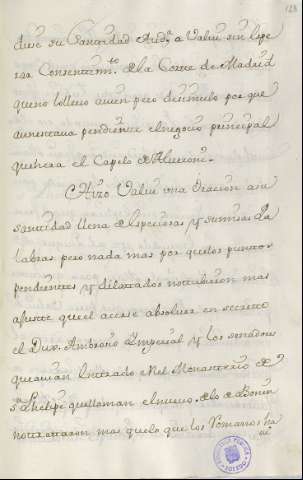 123
diese su Santidad Aud.ª a Valeri sin espe
rar Consentim.to de la Corte de Madrid
que no lo llevo avien pero disimulo por que
aumentava pendiente el negocio principal
que hera el Capelo de Alveroni.
Hizo Valeri una Oracion a su
santidad llena de especiosas y sumisas Pa
labras pero nada mas porque los puntos
pendientes y dilatados no tubieron mas
ajuste que el acerse absolver en secreto
el Dux Ambrosio Imperial y los senadores
que avian entrado en el Monasterio de
S.n Phelipe que llaman el nuevo. de lo de Bonin
no trataron mas que lo que los Romanos ha
BIBLIOTECA PUBLICA
TOLEDO